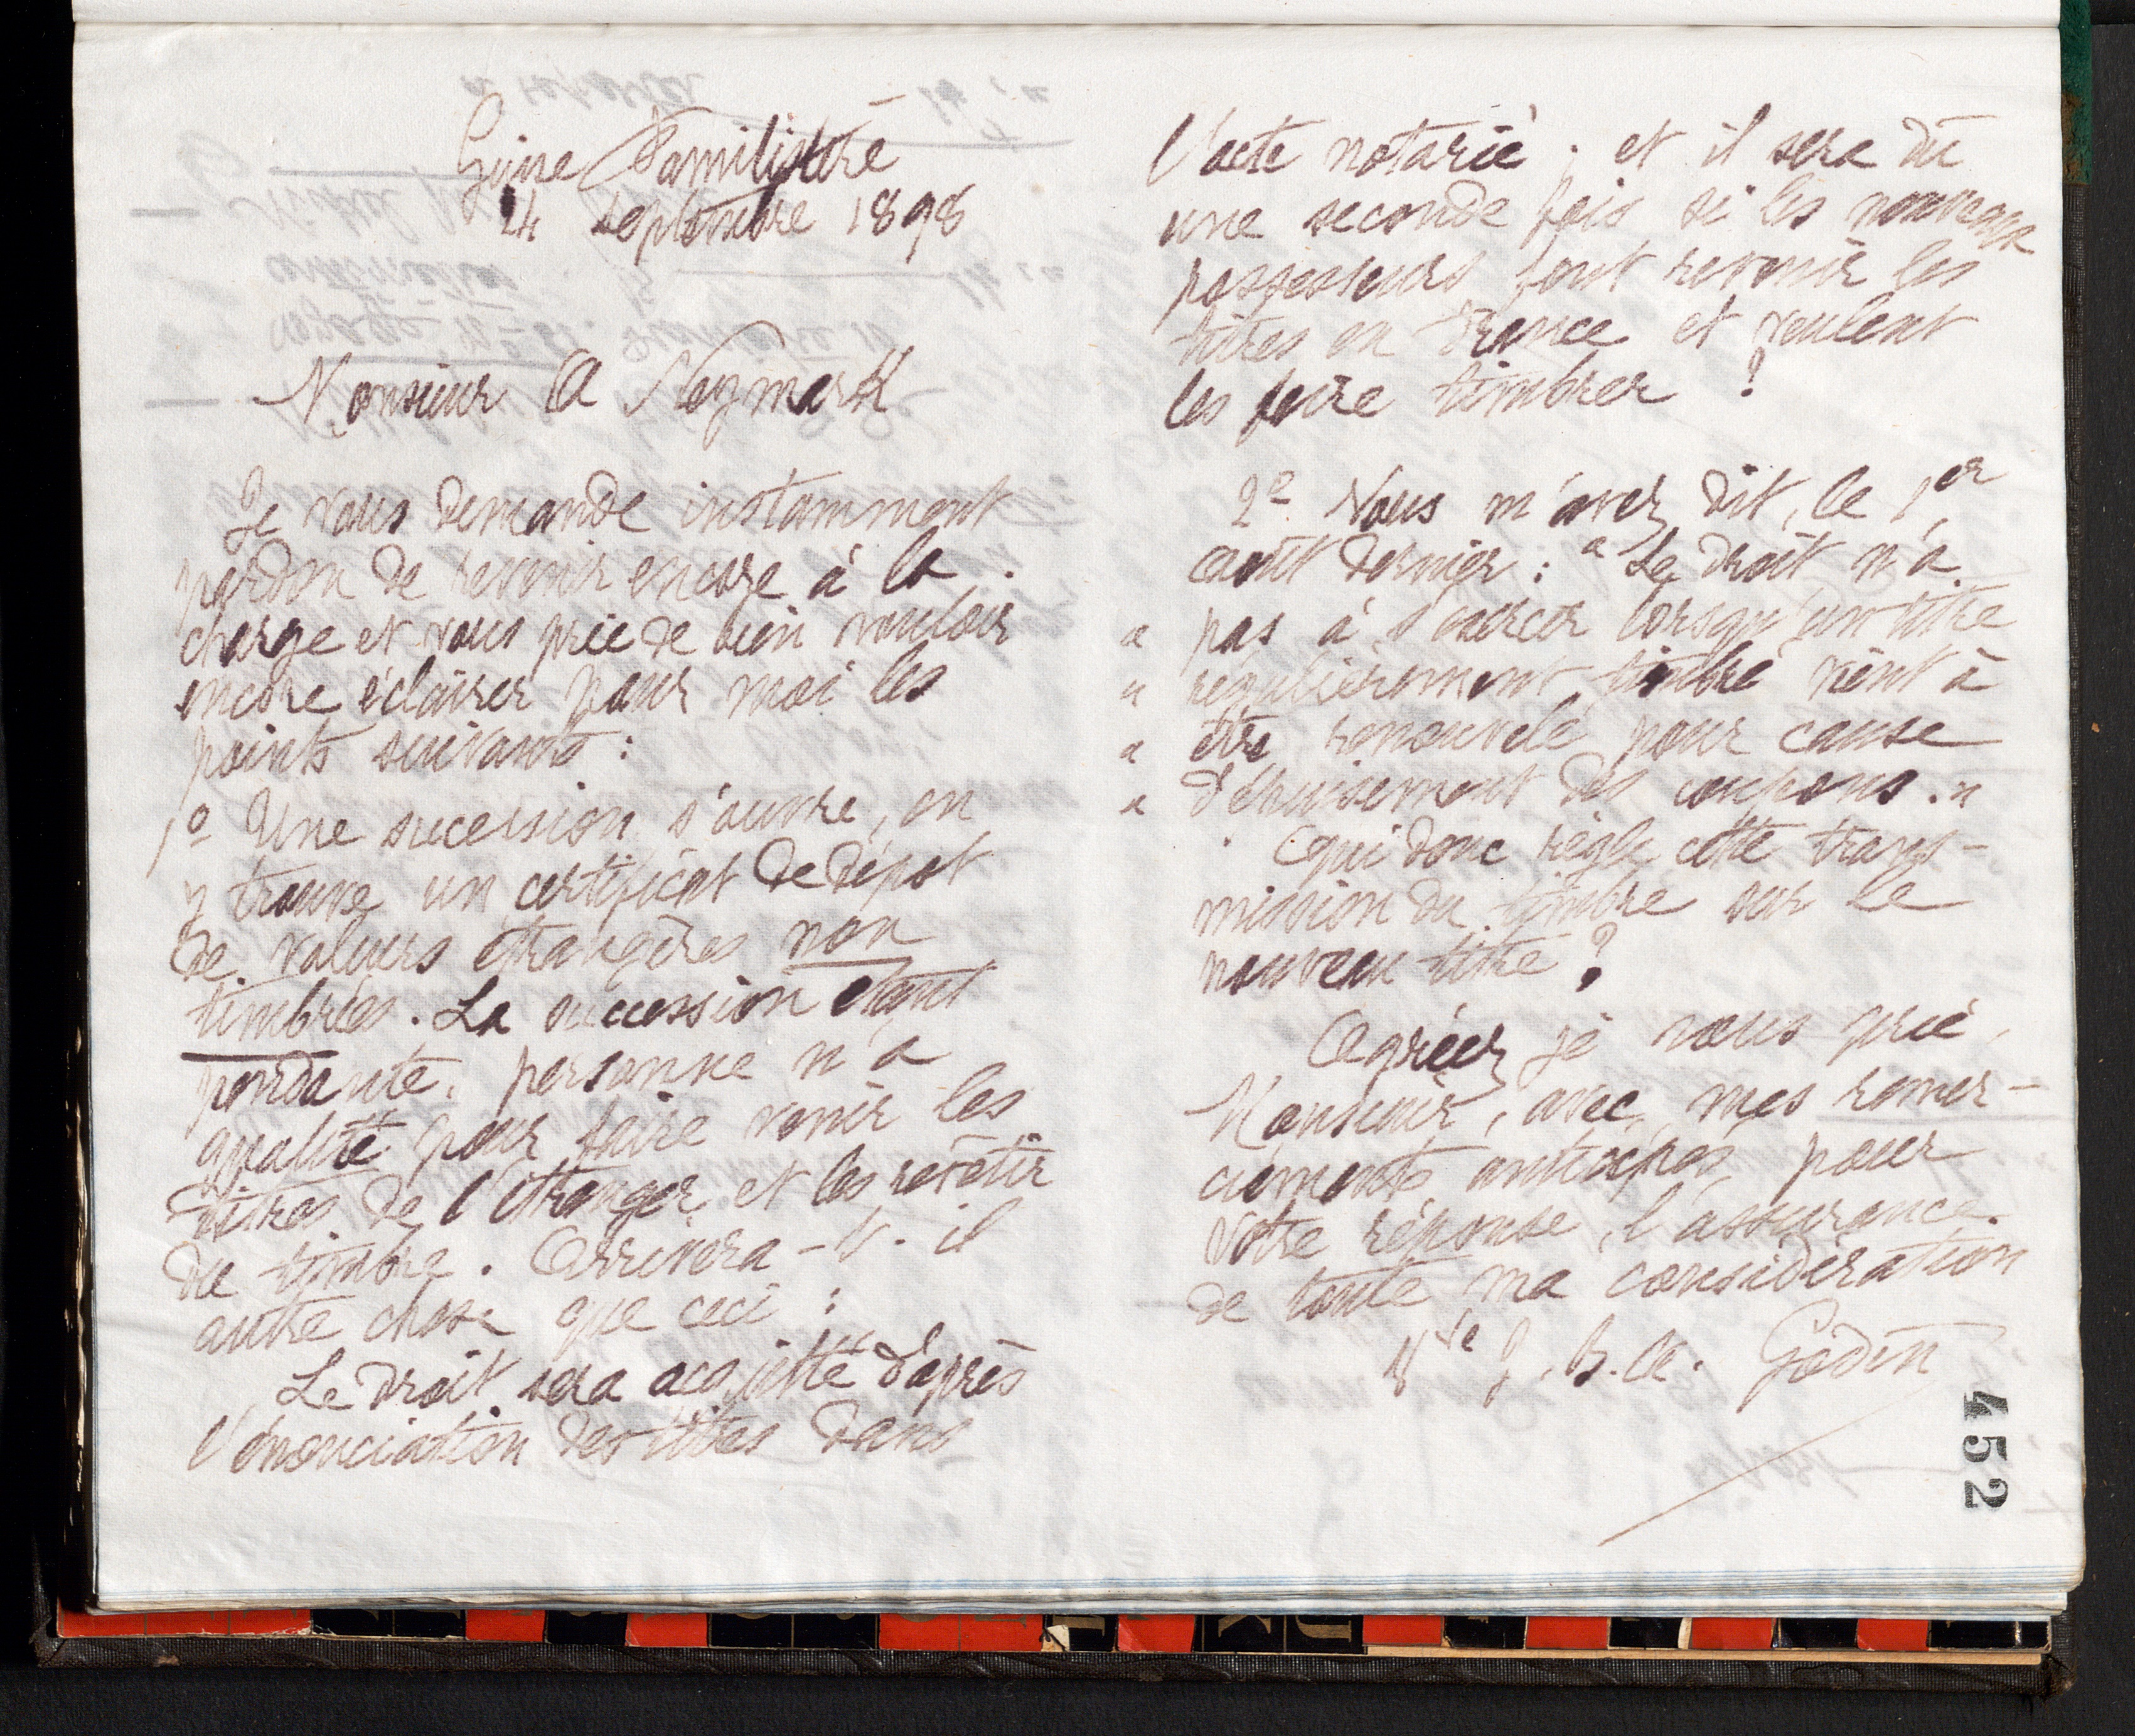 Guise Familistère
24 septembre 1898
Monsieur A Neymarck
Je vous demande instamment
pardon de revenir encore à la
charge et vous prie de bien vouloir
encore éclairer pour moi les
points suivants :
1º Une succession s'ouvre, on
y trouve un certificat de dépot
de valeurs étrangères non
timbrées. La succession étant
pendante, personne n'a
qualité pour faire venir les
titres de l'étranger et les revêtir
du timbre. Arrivera-t-il
autre chose que ceci :
Le droit sera acquitté d'après
l'énonciation des titres dans
l'acte notarié ; et il sera dû
une seconde fois si les nouveaux
possesseurs font revenir les
titres en France et veulent
les faire timbrer ?
2º Vous m'avez dit, le 1er
août dernier : « Le droit n'a
« pas à s'exercer lorsqu'un titre
« régulièrement timbré vient à
« être renouvelé pour cause
« d'épuisement des coupons. »
Qui donc règle cette trans-
mission du timbre sur le
nouveau titre ?
Agréez je vous prie,
Monsieur, avec mes remer-
ciements anticipés, pour
votre réponse, l'assurance
de toute ma considération
Vve J. B. A. Godin
452